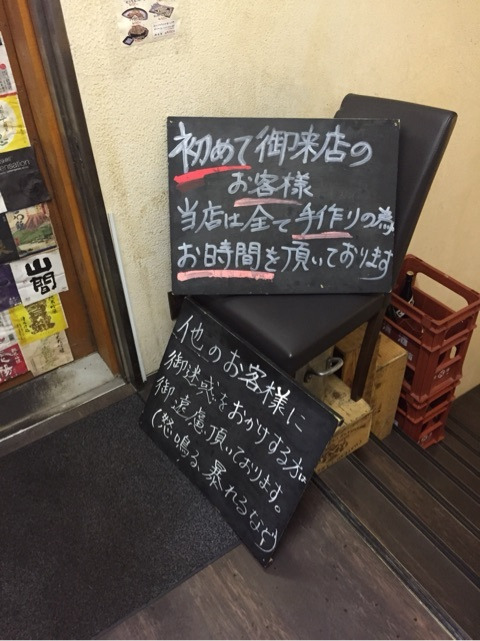 初めて御来店の
お客様
当店は全て手作りの為
お時間を頂いております
他のお客様に
御迷惑をおかけする方は
御遠慮頂いております。
(怒鳴る、暴れるなど)
山間